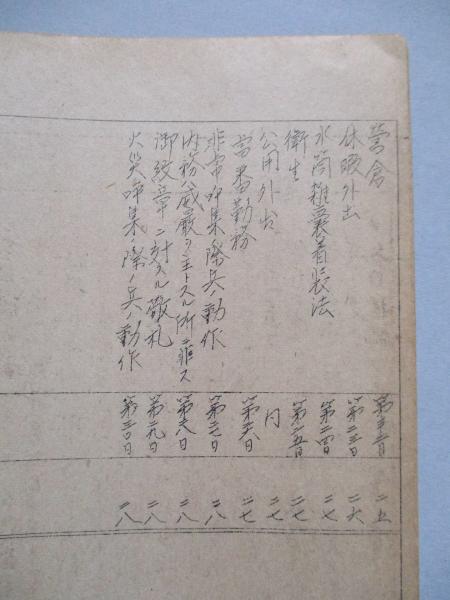 営倉 第二二日 二五
休暇外出 第二三日 二六
水筒雑嚢着装法 第二四日 二七
衛生 第二五日 二七
公用外出 同 二七
当番勤務 第二六日 二七
非常呼集ノ際兵ノ動作 第二七日 二八
内務ハ威厳ヲ主トスル所ニ非ス 第二八日 二八
御紋章ニ対スル敬礼 第二九日 二八
火災呼集ノ際ノ兵ノ動作 第三〇日 二八